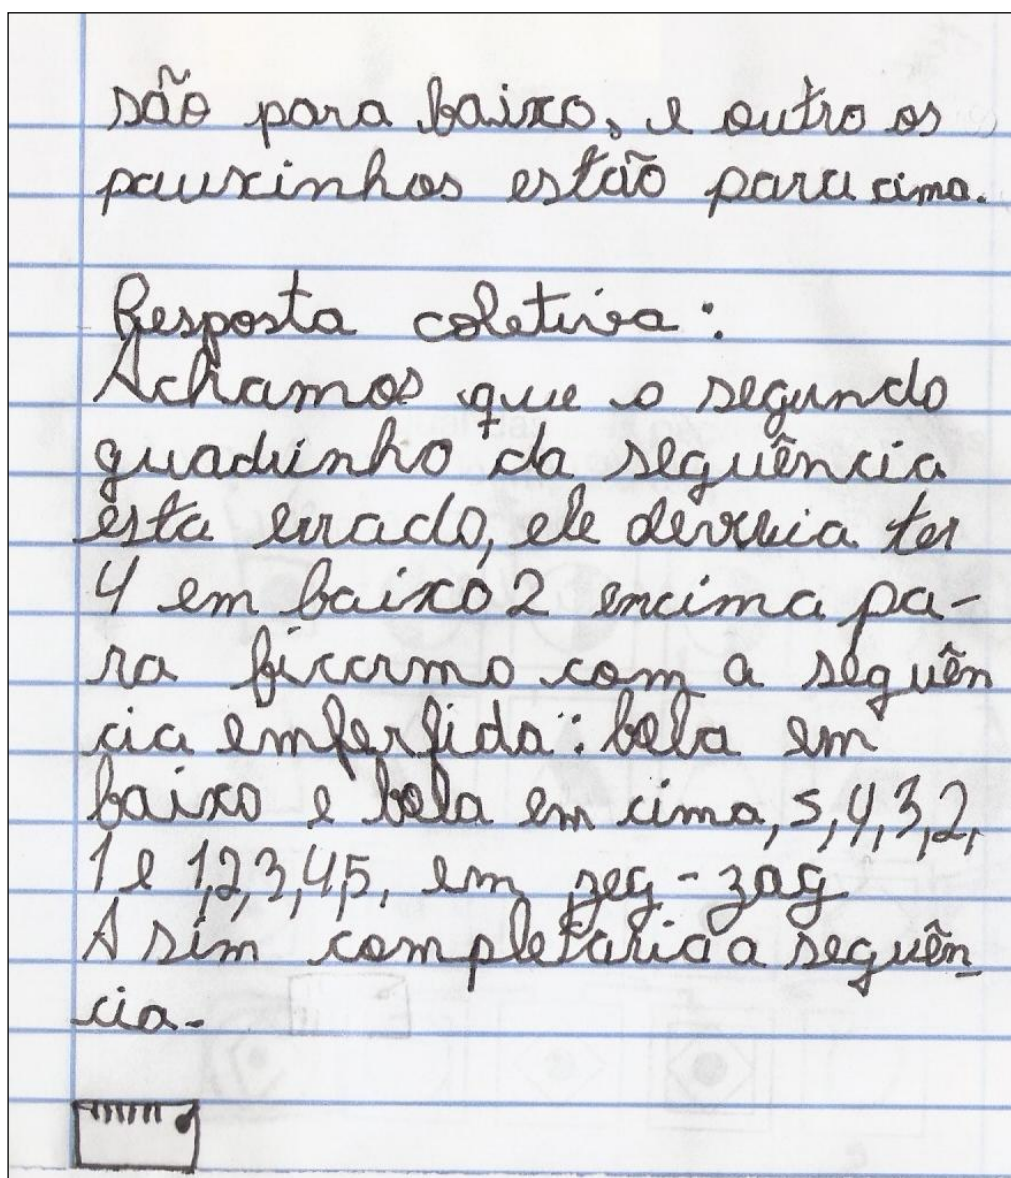 são para baixo, e outro os
pauxinhos estão para cima.
Resposta coletiva:
Achamos que o segundo
quadrinho da sequência
esta errado, ele deveria ter
4 em baixo 2 encima pa-
ra ficarmo com a sequên
cia emferfida: bola em
baixo e bola em cima, 5,4,3,2,
1 e 1,2,3,4,5, em zeg-zag
A sim completaria a sequên
cia.